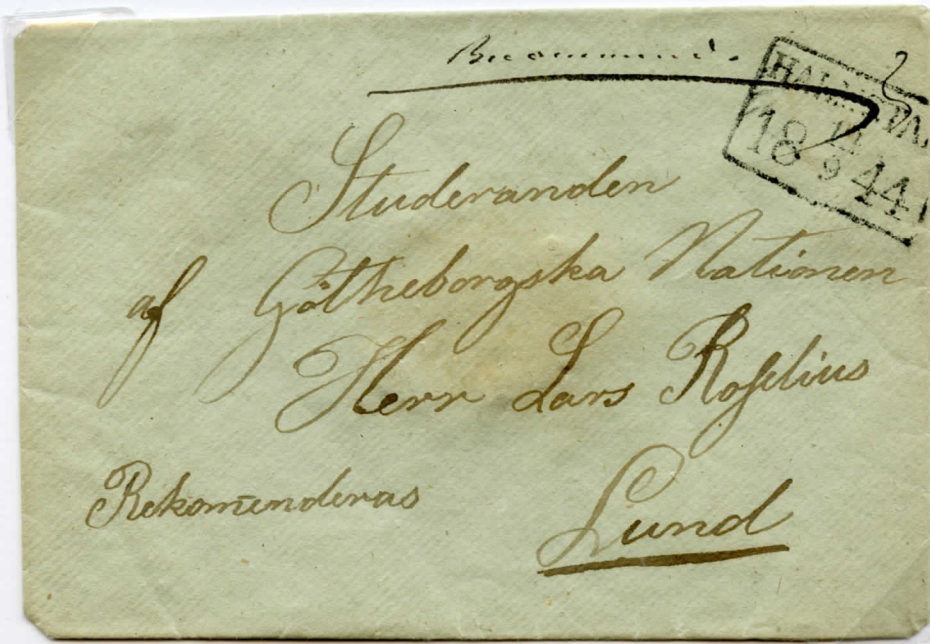 Recommend.
18 9 44
Studeranden
af Götheborgska Nationen
Herr Lars Roſelius
Rekom̄enderas
Lund